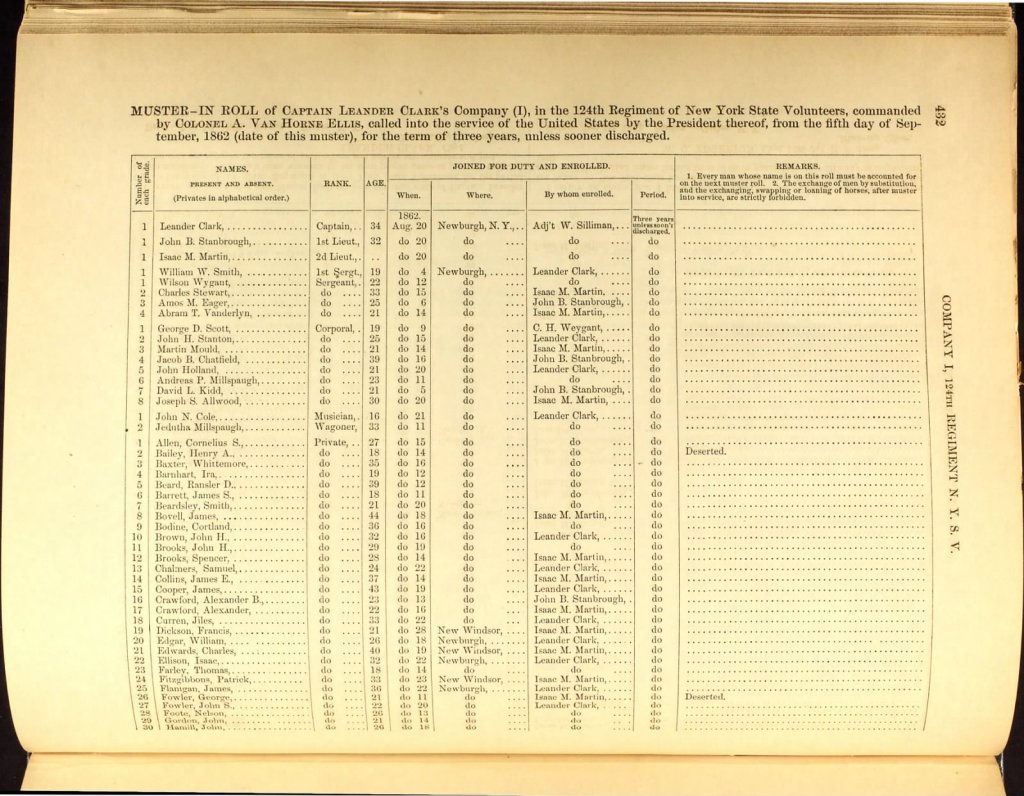 MUSTER-IN ROLL of CAPTAIN LEANDER CLARK'S Company (I), in the 124th Regiment of New York State Volunteers, commanded
by COLONEL A. VAN HORNE ELLIS, called into the service of the United States by the President thereof, from the fifth day of Sep-
tember, 1862 (date of this muster), for the term of three years, unless sooner discharged.
Number of each grade.
NAMES.
PRESENT AND ABSENT.
(Privates in alphabetical order.)
RANK.
AGE.
JOINED FOR DUTY AND ENROLLED.
When.
Where.
By whom enrolled.
Period.
REMARKS.
1. Every man whose name is on this roll must be accounted for
on the next muster roll. 2. The exchange of men by substitution,
and the exchanging, swapping or loaning of horses, after muster
into service, are strictly forbidden.
1862.
Three years unless soon'r discharged.
1 Leander Clark, Captain, 34 Aug. 20 Newburgh, N. Y., Adj't W. Silliman,
1 John B. Stanbrough, 1st Lieut., 32 do 20 do do do
1 Isaac M. Martin, 2d Lieut., .. do 20 do do do
1 William W. Smith, 1st Sergt., 19 do 4 Newburgh, Leander Clark, do
1 Wilson Wygant, Sergeant, 22 do 12 do do do
2 Charles Stewart, do 33 do 15 do Isaac M. Martin. do
3 Amos M. Eager, do 25 do 6 do John B. Stanbrough, do
4 Abram T. Vanderlyn, do 21 do 14 do Isaac M. Martin, do
1 George D. Scott, Corporal, 19 do 9 do C. H. Weygant, do
2 John H. Stanton, do 25 do 15 do Leander Clark, do
3 Martin Mould, do 21 do 14 do Isaac M. Martin, do
4 Jacob B. Chatfield, do 39 do 16 do John B. Stanbrough, do
5 John Holland, do 21 do 20 do Leander Clark, do
6 Andreas P. Millspaugh, do 23 do 11 do do do
7 David L. Kidd, do 21 do 5 do John B. Stanbrough, do
8 Joseph S. Allwood, do 30 do 20 do Isaac M. Martin, do
1 John N. Cole, Musician, 16 do 21 do Leander Clark, do
2 Jedutha Millspaugh, Wagoner, 33 do 11 do do do
1 Allen, Cornelius S., Private, 27 do 15 do do do
2 Bailey, Henry A., do 18 do 14 do do do Deserted.
3 Baxter, Whittemore, do 35 do 16 do do do
4 Barnhart, Ira, do 19 do 12 do do do
5 Beard, Ransler D., do 39 do 12 do do do
6 Barrett, James S., do 18 do 11 do do do
7 Beardsley, Smith, do 21 do 20 do do do
8 Bovell, James, do 44 do 18 do Isaac M. Martin, do
9 Bodine, Cortland, do 36 do 16 do do do
10 Brown, John H., do 32 do 16 do Leander Clark, do
11 Brooks, John H., do 29 do 19 do do do
12 Brooks, Spencer, do 28 do 14 do Isaac M. Martin, do
13 Chalmers, Samuel, do 24 do 22 do Leander Clark, do
14 Collins, James E., do 37 do 14 do Isaac M. Martin, do
15 Cooper, James, do 43 do 19 do Leander Clark, do
16 Crawford, Alexander B., do 23 do 13 do John B. Stanbrough, do
17 Crawford, Alexander, do 22 do 16 do Isaac M. Martin, do
18 Curren, Jiles, do 33 do 22 do Leander Clark, do
19 Dickson, Francis, do 21 do 28 New Windsor, Isaac M. Martin, do
20 Edgar, William, do 26 do 18 Newburgh, Leander Clark, do
21 Edwards, Charles, do 40 do 19 New Windsor, Isaac M. Martin, do
22 Ellison, Isaac, do 32 do 22 Newburgh, Leander Clark, do
23 Farley, Thomas, do 18 do 14 do do do
24 Fitzgibbons, Patrick, do 33 do 23 New Windsor, Isaac M. Martin, do
25 Flanigan, James, do 36 do 22 Newburgh, Leander Clark, do
26 Fowler, George, do 21 do 11 do Isaac M. Martin, do Deserted.
27 Fowler, John S., do 22 do 20 do Leander Clark, do
28 Foote, Nelson, do 26 do 13 do do do
29 Gordon, John, do 21 do 14 do do do
30 Hamill, John, do 26 do 18 do do do
432
COMPANY I, 124TH REGIMENT N. Y. S. V.